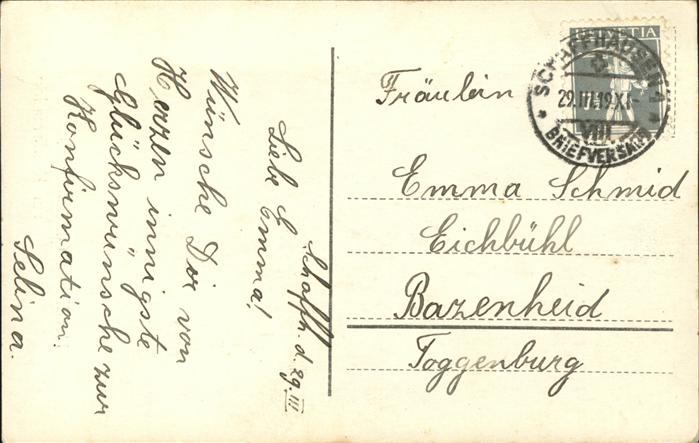 Schaffh. d. 29.III.
Liebe Emma!
Wünsche Dir von
Herzen innigste
Glückswünsche zur
Konfirmation.
Selina.
HELVETIA
SCHAFFHAUSEN 1
29.III.19.XI-
VIII
BRIEFVERSAND
Fräulein
Emma Schmid
Eichbühl
Bazenheid
Toggenburg